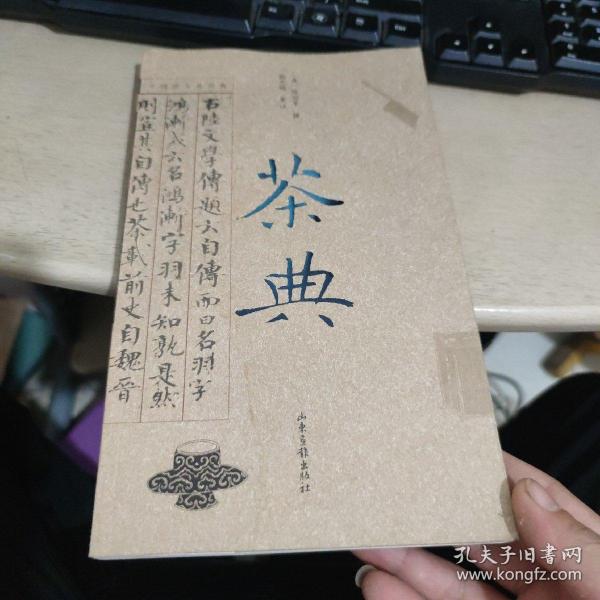 茶典
山東畫報出版社
右陸文學傳題云自傳而曰名羽字
鴻漸或云名鴻漸字羽未知孰是然
則豈其自傳也茶載前史自魏晉
孔夫子旧书网
www.kongfz.com